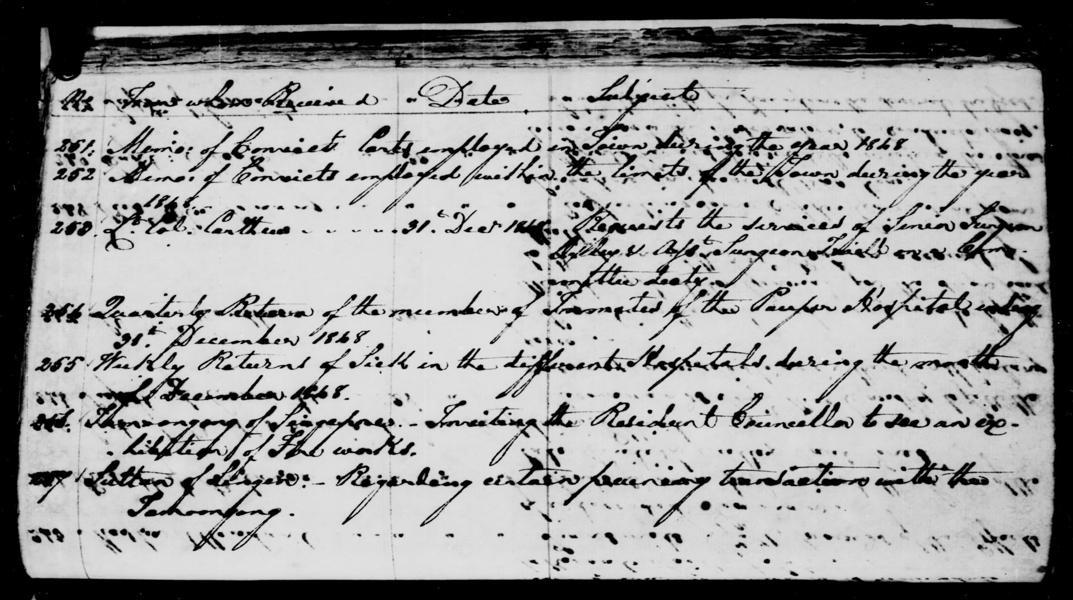 No. From whom Received " Date " Subject
251. Memo: of Convicts Carts employed in Town during the year 1848
252 Memo: of Convicts employed within the limits of the Town during the year
1848
253. Lt. Col. . . . . . 31st Decr 1848 Requests the services of Senior Surgeon
& Asst. Surgeon on a Com
mittee duty.
254 Quarterly Return of the number of Inmates of the Pauper Hospital ending
31st December 1848
255 Weekly Returns of Sick in the different Hospitals during the month
of December 1848.
256. Tamoongong of Singapore. - Inviting the Resident Councillor to see an ex-
hibition of Fire works.
257 Sultan of - Regarding certain pecuniary transaction with the
Tamoongong.